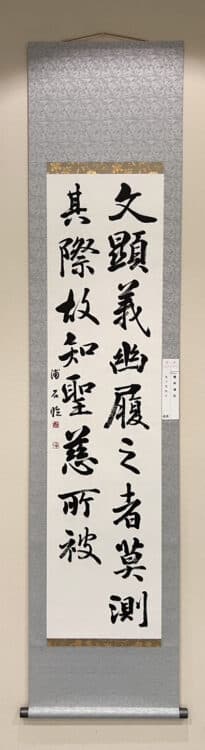 文顕義幽履之者莫測
其際故知聖慈所被
浦石臨